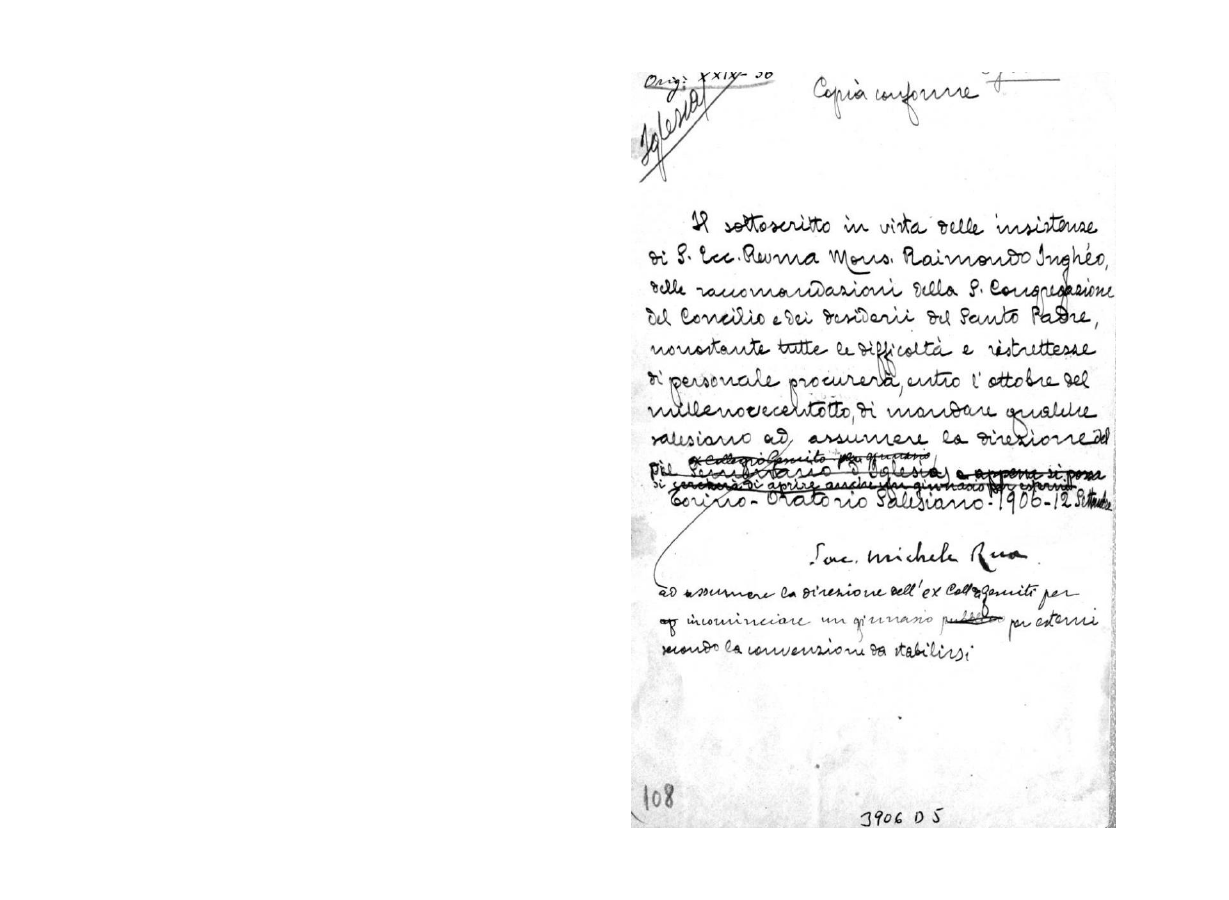 Orig: XXIX- 36
Copia conforme
Iglesia
Il sottoscritto in vista delle insistenze
di S. Ecc. Revma Mons. Raimondo Inghéo,
delle raccomandazioni della S. Congregazione
del Concilio e dei desiderii del Santo Padre,
nonostante tutte le difficoltà e ristrettezze
di personale procurerà, entro l'ottobre del
millenovecentotto, di mandare qualche
salesiano ad assumere la direzione del
ex Collegio Gesuiti per ginnasio
Seminario d'Iglesia, e appena si possa
di cercherà di aprire anche un ginnasio per esterni
Torino - Oratorio Salesiano - 1906 - 12 Settembre
Sac. Michele Rua
ad assumere la direzione dell'ex Coll. Gesuiti per
incominciare un ginnasio per esterni
secondo la convenzione da stabilirsi
108
3906 D 5